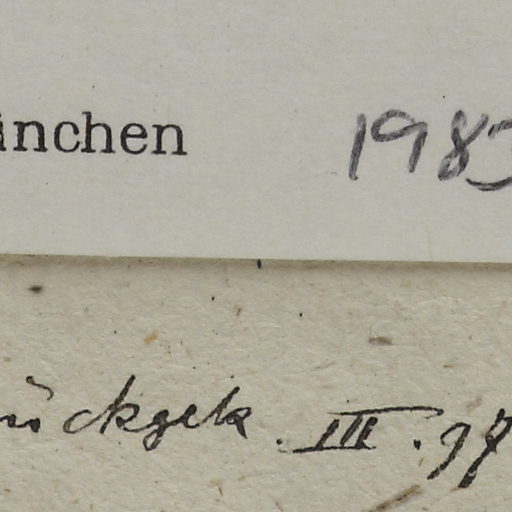 ünchen 1983
rückgek. III. 97